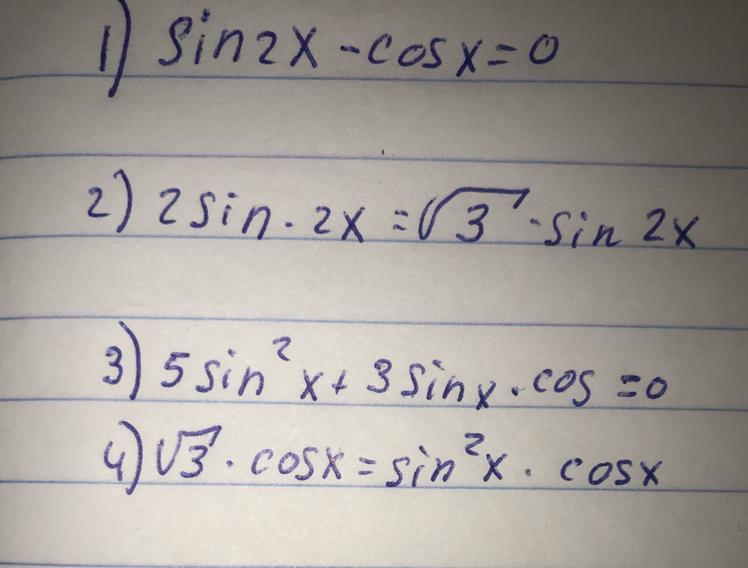 1) sin2x - cosx = 0
2) 2sin · 2x = √3 · sin 2x
3) 5sin²x + 3sinx · cos = 0
4) √3 · cosx = sin²x · cosx